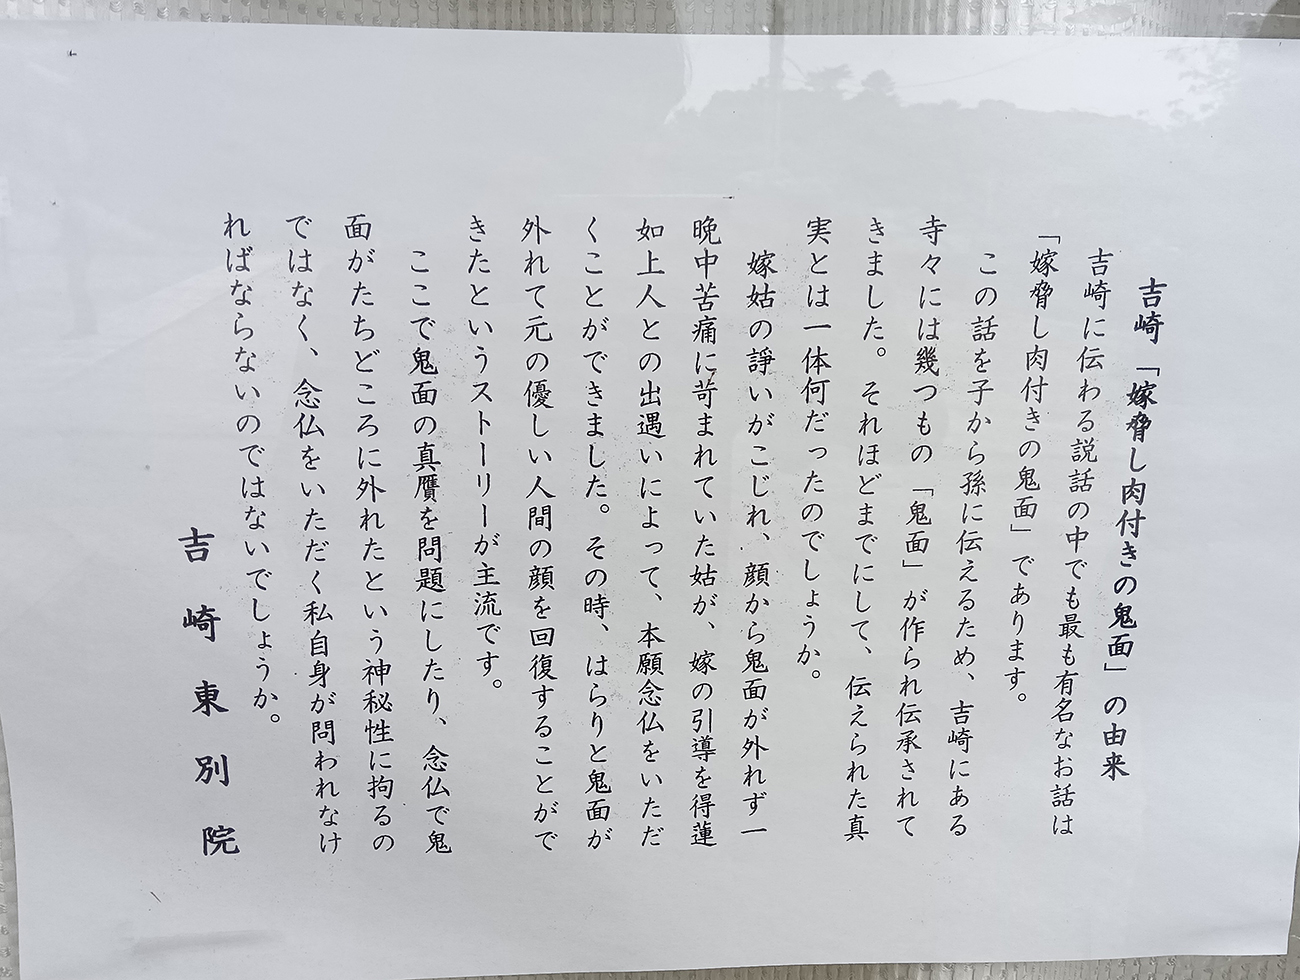 吉崎「嫁脅し肉付きの鬼面」の由来
吉崎に伝わる説話の中でも最も有名なお話は
「嫁脅し肉付きの鬼面」であります。
この話を子から孫に伝えるため、吉崎にある
寺々には幾つもの「鬼面」が作られ伝承されて
きました。それほどまでにして、伝えられた真
実とは一体何だったのでしょうか。
嫁姑の諍いがこじれ、顔から鬼面が外れず一
晩中苦痛に苛まれていた姑が、嫁の引導を得蓮
如上人との出遇いによって、本願念仏をいただ
くことができました。その時、はらりと鬼面が
外れて元の優しい人間の顔を回復することがで
きたというストーリーが主流です。
ここで鬼面の真贋を問題にしたり、念仏で鬼
面がたちどころに外れたという神秘性に拘るの
ではなく、念仏をいただく私自身が問われなけ
ればならないのではないでしょうか。
吉崎東別院